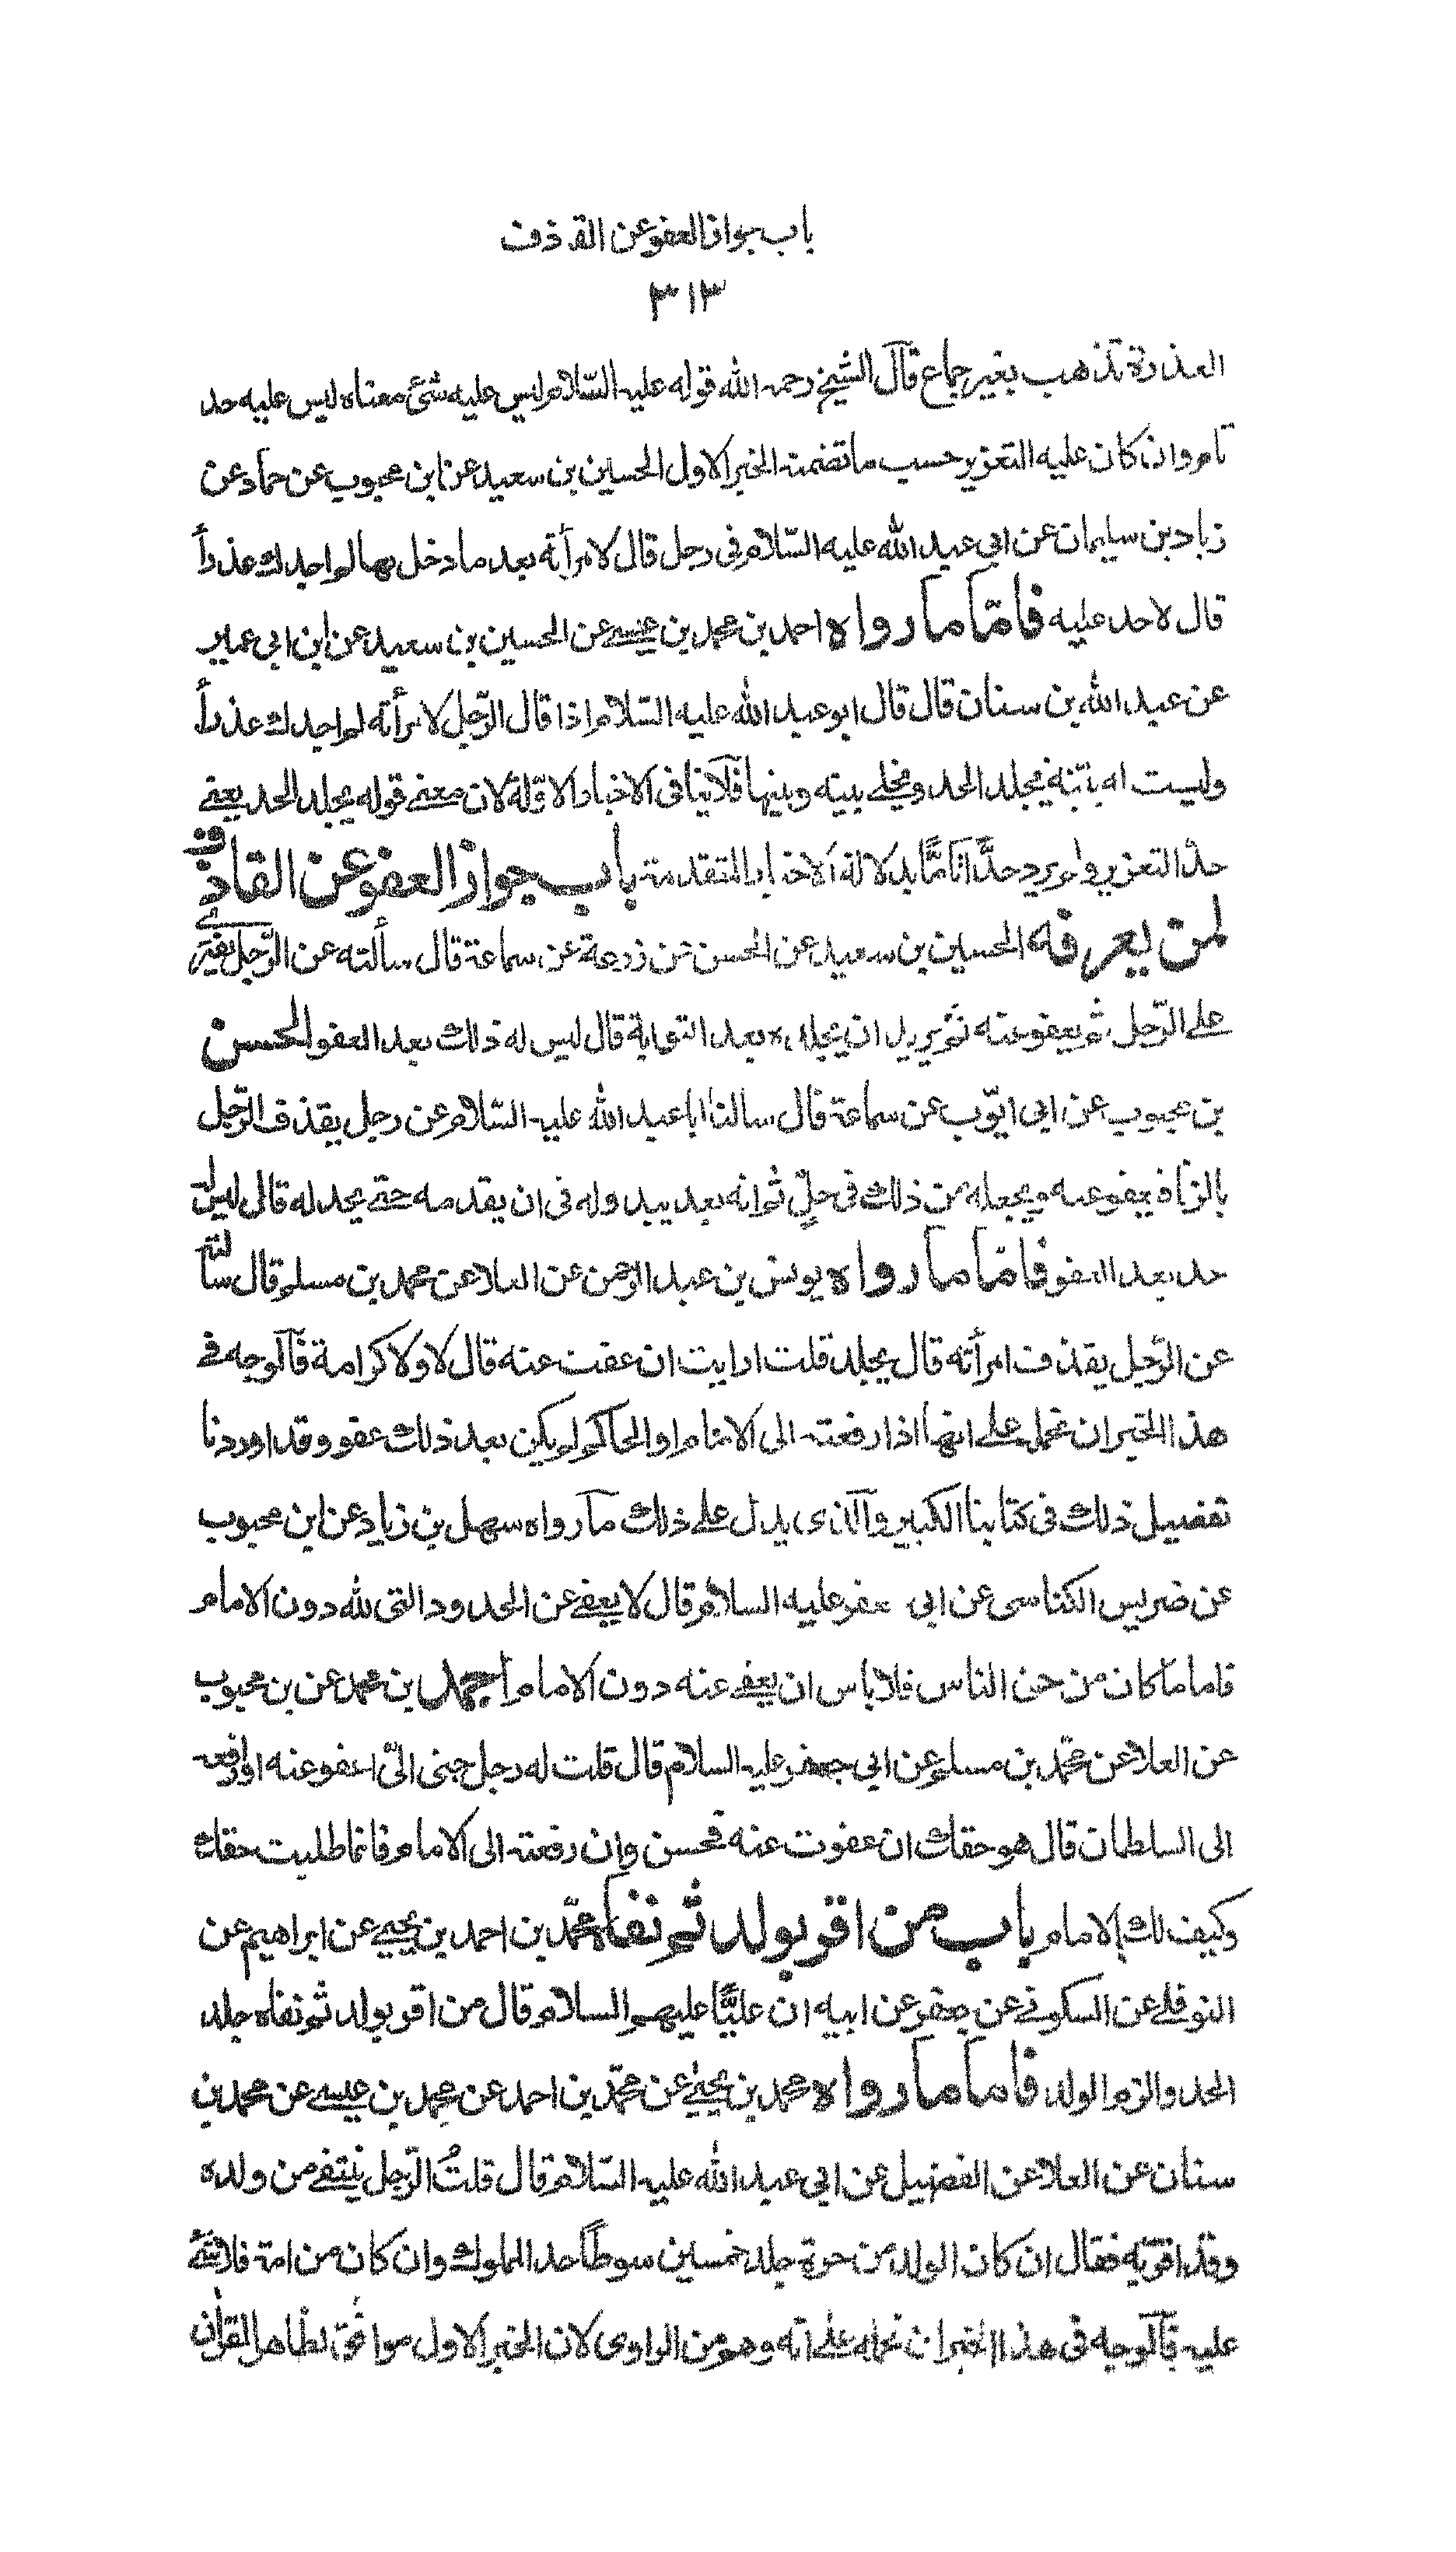 باب جواز العفو عن القذف
٣١٣
العذرة تذهب بغير جماع قال الشيخ رحمه الله قوله عليه السلام ليس عليه شئ معناه ليس عليه حد
تام وان كان عليه التعزير حسب ما تضمنه الخبر الاول الحسين بن سعيد عن ابن محبوب عن حماد عن
زياد بن سليمان عن ابي عبد الله عليه السلام في رجل قال لامرأته بعد ما دخل بها لم اجدك عذراء
قال لا حد عليه فاما ما رواه احمد بن محمد بن عيسى عن الحسين بن سعيد عن ابن ابي عمير
عن عبد الله بن سنان قال قال ابو عبد الله عليه السلام اذا قال الرجل لامرأته لم اجدك عذراء
وليست له بينة يجلد الحد ويخلى بينه وبينها فلا ينافى الاخبار الاولة لان معنى قوله يجلد الحد يعني
حد التعزير ولم يرد حدا تاما بدلالة الاخبار المتقدمة باب جواز العفو عن القاذف
لمن يعرفه الحسين بن سعيد عن الحسن عن زرعة عن سماعة قال سألته عن الرجل يفترى
على الرجل ثم يعفو عنه ثم يريد ان يجلده بعد التوبة قال ليس له ذلك بعد العفو الحسن
بن محبوب عن ابي ايوب عن سماعة قال سالت ابا عبد الله عليه السلام عن رجل يقذف الرجل
بالزنا فيعفو عنه ويجعله من ذلك في حل ثم انه بعد يبدو له في ان يقدمه حتى يجلد له قال ليس له
حد بعد العفو فاما ما رواه يونس بن عبد الرحمن عن العلا عن محمد بن مسلم قال سألته
عن الرجل يقذف امرأته قال يجلد قلت ارايت ان عفت عنه قال لا ولا كرامة فالوجه في
هذا الخبر ان نحمله على انها اذا رفعته الى الامام او الحاكم لم يكن بعد ذلك عفو وقد اوردنا
تفصيل ذلك في كتابنا الكبير والذى يدل على ذلك ما رواه سهل بن زياد عن ابن محبوب
عن ضريس الكناسى عن ابي جعفر عليه السلام قال لا يعفى عن الحدود التى لله دون الامام
فاما ما كان من حق الناس فلا باس ان يعفى عنه دون الامام احمد بن محمد عن بن محبوب
عن العلا عن محمد بن مسلم عن ابي جعفر عليه السلام قال قلت له رجل جنى الى اعفو عنه او ارفعه
الى السلطان قال هو حقك ان عفوت عنه فحسن وان رفعته الى الامام فانما طلبت حقك
وكيف لك بالامام باب من اقر بولد ثم نفاه محمد بن احمد بن يحيى عن ابراهيم عن
النوفلى عن السكونى عن جعفر عن ابيه ان عليا عليهم السلام قال من اقر بولد ثم نفاه جلد
الحد والزم الولد فاما ما رواه محمد بن يحيى عن محمد بن احمد عن محمد بن عيسى عن محمد بن
سنان عن العلا عن الفضيل عن ابي عبد الله عليه السلام قال قلت الرجل ينتفى من ولده
وقد اقر به فقال ان كان الولد من حرة جلد خمسين سوطا حد المملوك وان كان من امة فلا شئ
عليه فالوجه في هذا الخبر ان نحمله على انه وهم من الراوى لان الخبر الاول موافق لظاهر القرآن